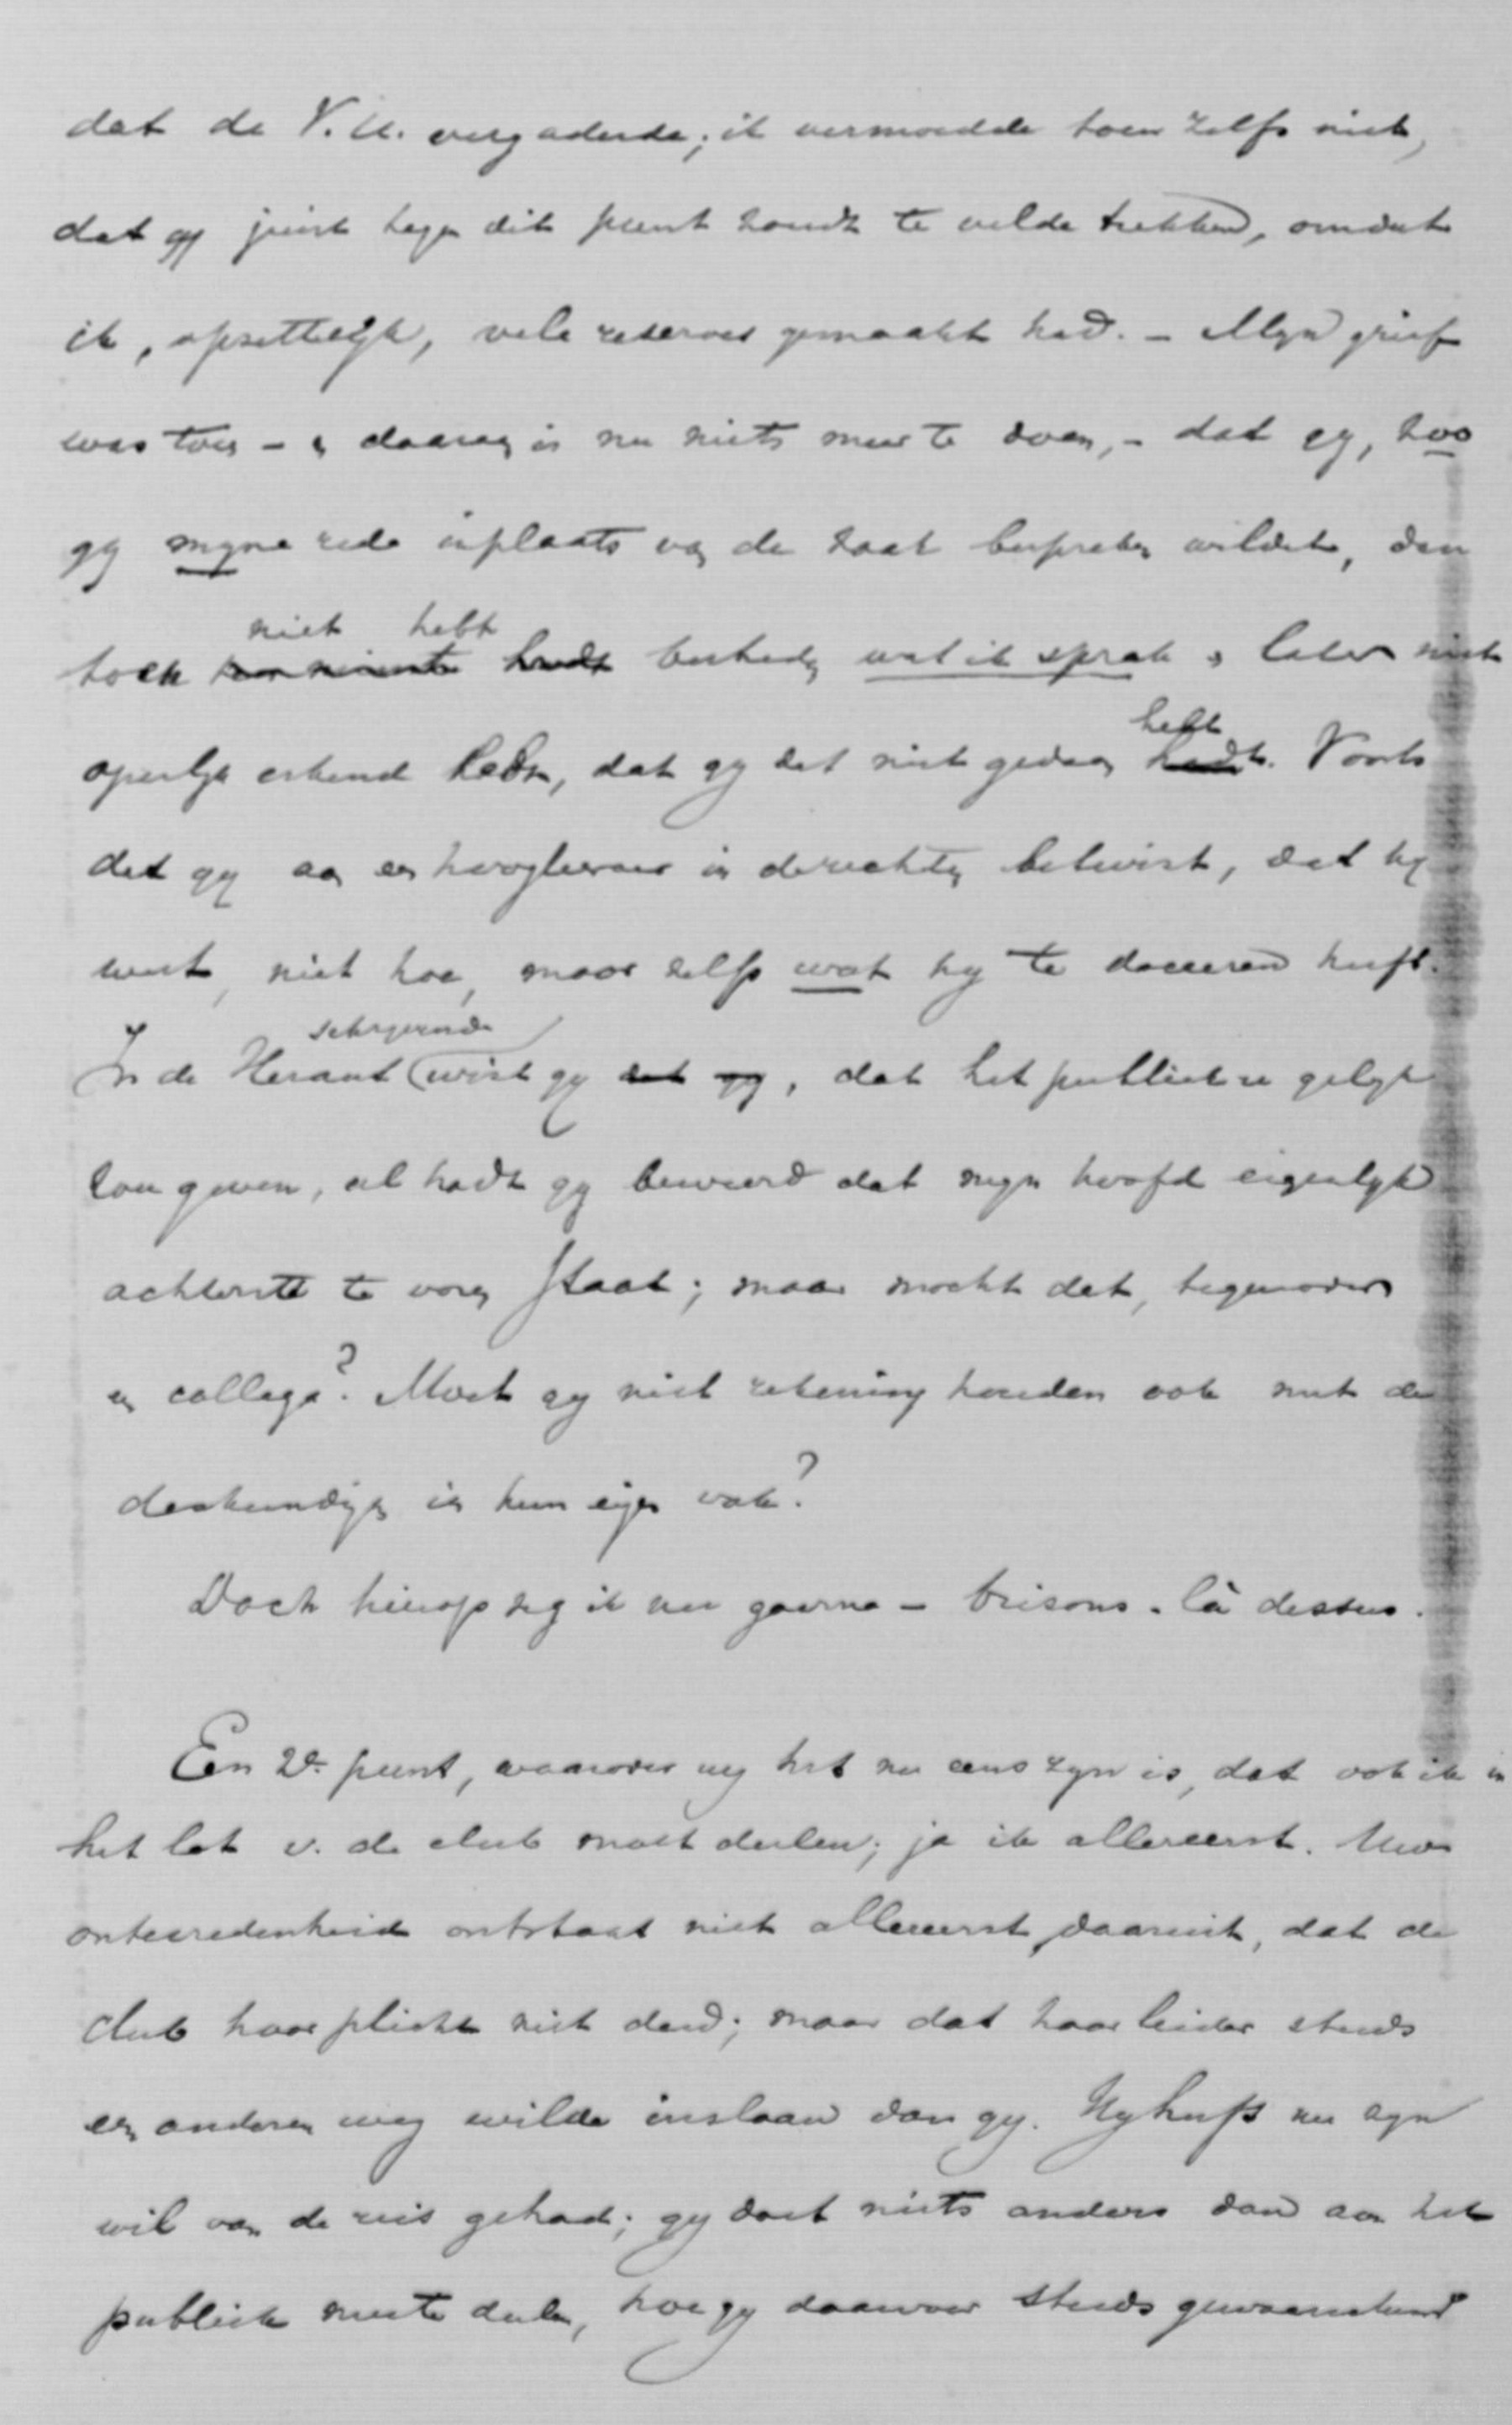 dat de V.U. vergaderde; ik vermoedde toen zelfs niet,
dat gy juist tegen dit punt zoudt te velde trekken, omdat
ik, opzettelyk, vele reserves gemaakt had. – Myn grief
was toen – en daaraan is nu niets meer te doen, – dat gy, zoo
gy myne rede inplaats van de zaak bespreken wildet, dan
niet hebt
toch hadt bestreden wat ik sprak en later niet
hebt
openlyk erkend hebt, dat gy dat niet gedaan hadt. Voorts
dat gy aan een hoogleeraar in de rechten betwist, dat hy
weet, niet hoe, maar zelfs wat hy te doceeren heeft.
schryvende
In de Heraut wist gy dat gy, dat het publiek u gelyk
zou geven, al hadt gy beweerd dat myn hoofd eigenlyk
achterste te voren staat; maar mocht dat, tegenover
een collega? Moet gy niet rekening houden ook met de
deskundigen in hun eigen vak?
Doch hierop zeg ik nu gaarne – brisons-là dessus.
Een 2e punt, waarover wy het nu eens zyn is, dat ook ik in
het lot v. de club moet deelen; ja ik allereerst. Uw
ontevredenheid ontstaat niet allereerst daaruit, dat de
club haar plicht niet deed; maar dat haar leider steeds
een anderen weg wilde inslaan dan gy. Hy heeft nu zyn
wil van de reis gehad; gy doet niets anders dan aan het
publiek mee te deelen, hoe gy daarvoor steeds gewaarschuwd